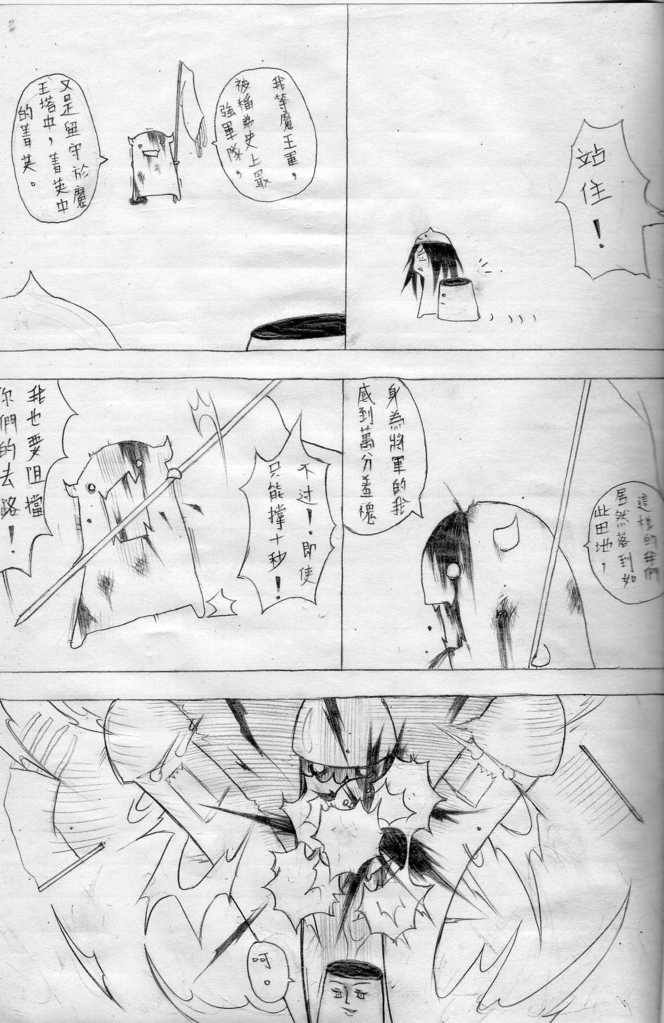 站住！
我等魔王軍，
被稱為史上最
強軍隊，
又是留守於魔
王塔中，菁英中
的菁英。
這樣的我們
居然落到如
此田地，
身為將軍的我
感到萬分羞愧
不过！即使
只能撐十秒！
我也要阻擋
你們的去路！
呵。